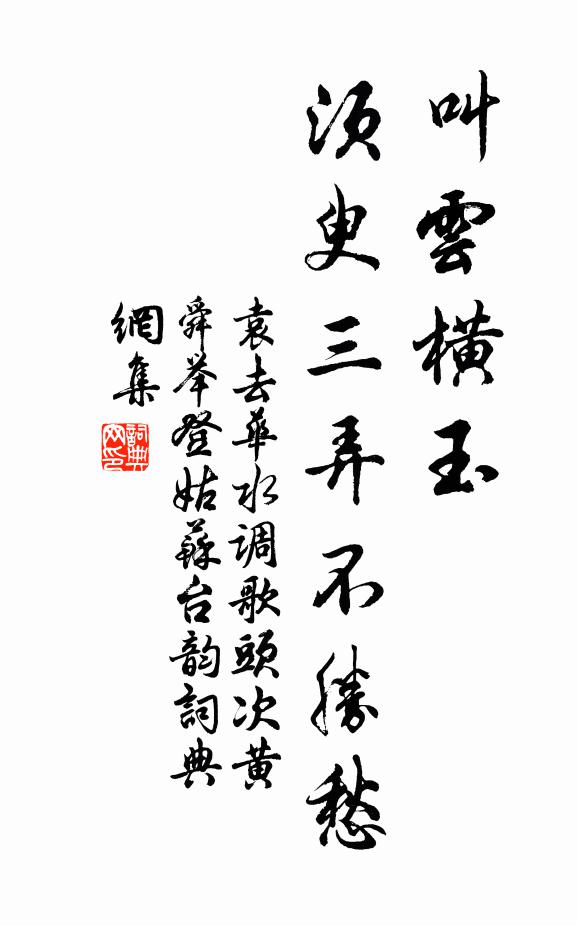 叫雲橫玉
須臾三弄不勝愁
袁去華水调歌頭次黄
舜举登姑蘇台韵詞典
網集
詞典
网印